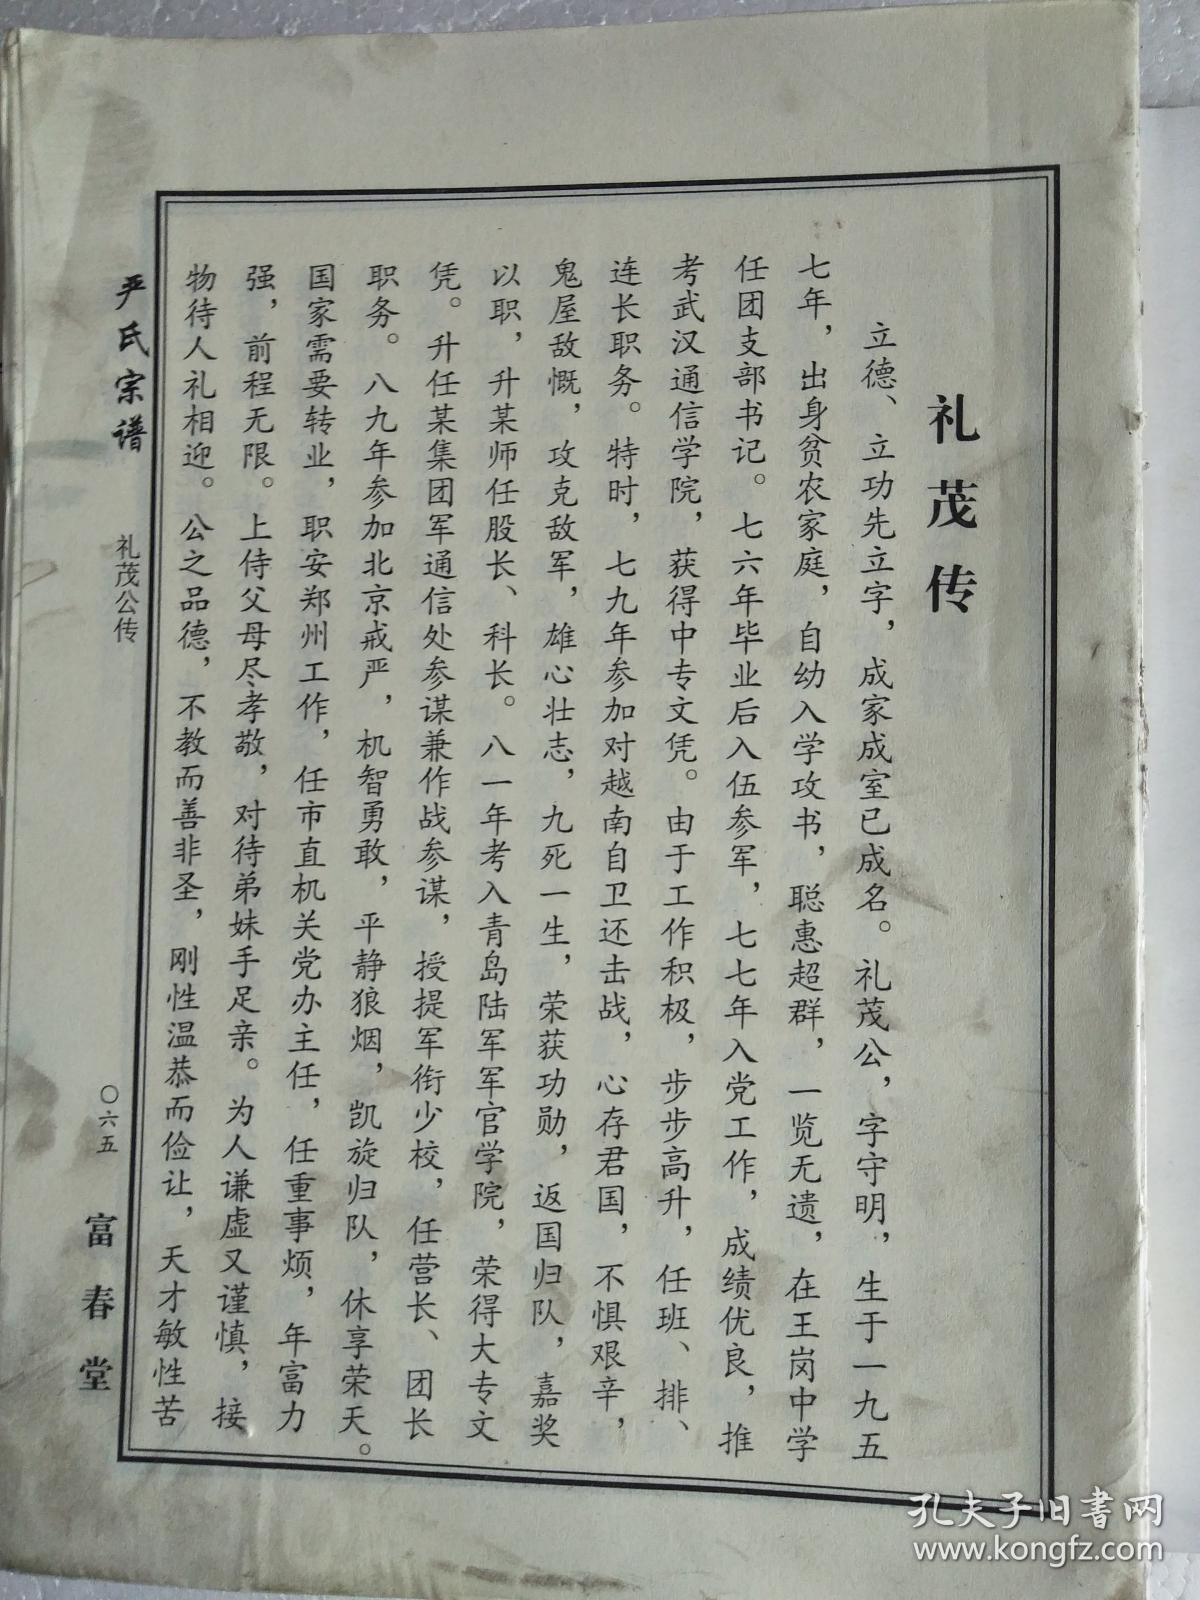 礼茂传
立德、立功先立字，成家成室已成名。礼茂公，字守明，生于一九五
七年，出身贫农家庭，自幼入学攻书，聪惠超群，一览无遗，在王岗中学
任团支部书记。七六年毕业后入伍参军，七七年入党工作，成绩优良，推
考武汉通信学院，获得中专文凭。由于工作积极，步步高升，任班、排、
连长职务。特时，七九年参加对越南自卫还击战，心存君国，不惧艰辛，
鬼屋敌慨，攻克敌军，雄心壮志，九死一生，荣获功勋，返国归队，嘉奖
以职，升某师任股长、科长。八一年考入青岛陆军军官学院，荣得大专文
凭。升任某集团军通信处参谋兼作战参谋，授提军衔少校，任营长、团长
职务。八九年参加北京戒严，机智勇敢，平静狼烟，凯旋归队，休享荣天。
国家需要转业，职安郑州工作，任市直机关党办主任，任重事烦，年富力
强，前程无限。上侍父母尽孝敬，对待弟妹手足亲。为人谦虚又谨慎，接
物待人礼相迎。公之品德，不教而善非圣，刚性温恭而俭让，天才敏性苦
严氏宗谱
礼茂公传
〇六五
富春堂
孔夫子旧书网
www.kongfz.com